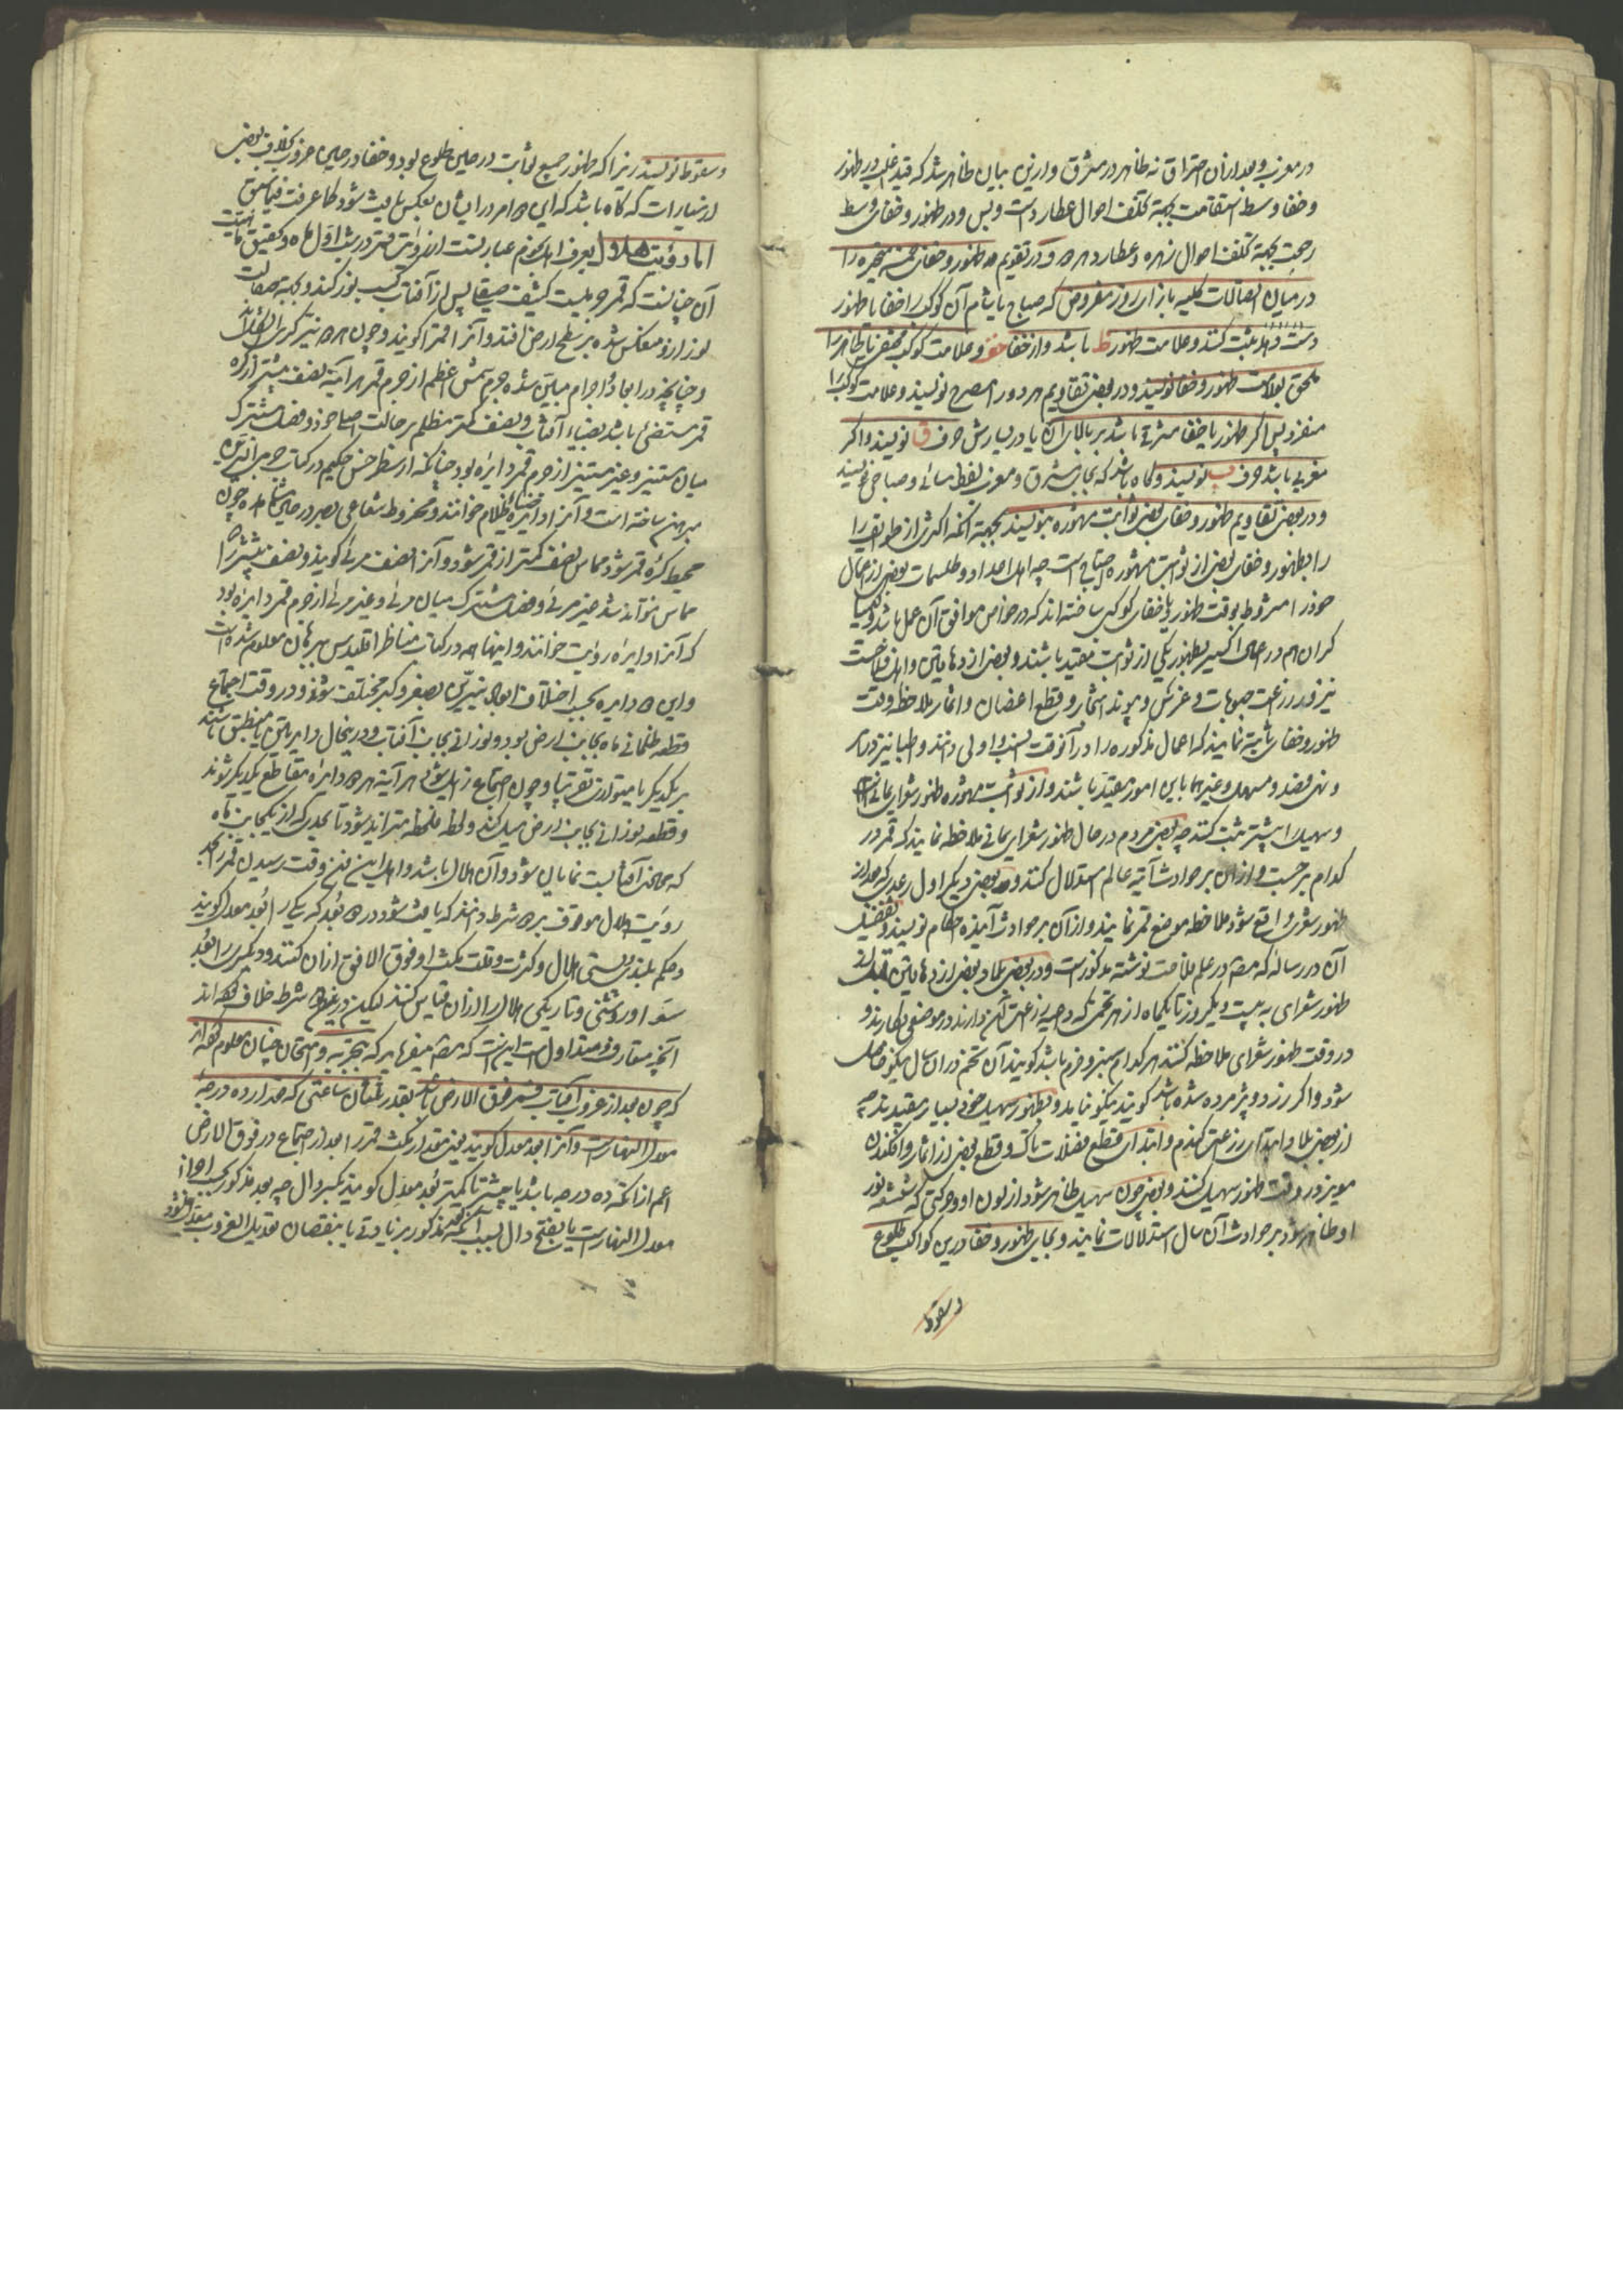 در مغرب و بعد از آن احتراق نه ظاهر در مشرق و ازین بیان ظاهر شد که قید در ظهور
و خفا وسط استقامت بجهة تخلف احوال عطارد است و بس و در ظهور و خفای وسط
رجعت بجهة تخلف احوال زهره و عطارد هر دو و در تقویم ظهور و خفای خمسه متحیره را
در میان اتصالات کلیه بازای روز مفروض که صباح یا شام آن کوکب را خفا یا ظهور
دست دهد ثبت کنند و علامت ظهور ظ باشد و از خفا خف و علامت کوکب مختفی یا ظاهر را
ملحق بعلامت ظهور و خفا نویسند و در بعض تقاویم هر دو را مصرح نویسند و علامت کوکب را
منفرد پس اگر ظهور یا خفا مشرقی باشد بر بالای آن یا در یسارش حرف ق نویسند و اگر
مغربی باشد حرف ب نویسند و گاه باشد که بجای مشرق و مغرب لفظ مسائی و صباحی نویسند
و در بعض تقاویم ظهور و خفای بعض ثوابت مشهوره نویسند بجهة آنکه اکثری از طوایف را
را بظهور و خفای بعض از ثوابت مشهوره احتیاج است چه اهل اعداد و طلسمات بعض از اعمال
خود را مشروط بوقت ظهور یا خفای کوکبی ساخته اند که در خواص موافق آن عمل باشد و کیمیا
گران هم در عمل اکسیر بظهور یکی از ثوابت مقید باشند و بعض از دهاقین و اهل فلاحت
نیز در زرعت حبوبات و غرس و پیوند اشجار و قطع اغصان و اثمار ملاحظه وقت
ظهور و خفای نمایند که اعمال مذکوره را در آنوقت انسب و اولی دانند و اطبا نیز در
و فصد و مسهل و غیرهما باین امور مقید باشند و از ثوابت مشهوره ظهور شعرای یمانی
و سهیل را بیشتر ثبت کنند چه بعض مردم در حال ظهور شعرای یمانی ملاحظه نمایند که قمر در
کدام برجست و از آن بر حوادث آتیه عالم استدلال کنند و بعض دیگر اول رعدی که بعد از
ظهور شعری واقع شود ملاحظه موضع قمر نمایند و از آن بر حوادث آینده احکام نویسند و تفصیل
آن در رساله که مصنف در علم ملاحمت نوشته مذکورست و در بعض بلاد بعض از دهاقین قبل از
ظهور شعرای به بیست و یکروز تا یکماه از هر تخمی که داعیه زراعت آن دارند در موضعی بکارند و
در وقت ظهور شعرای ملاحظه کنند هر کدام سبز و خرم باشد گویند آن تخم در آن سال نیکو حاصل
شود و اگر زرد و پژمرده شده باشد گویند نیکو نیاید و بظهور سهیل خود بسیار مقیدند چه
از بعض بلاد ابتدای زرعت گندم و ابتدای قطع فضلات تاک و قطع بعض از اثمار و افکندن
مویز در وقت ظهور سهیل کنند و بعض چون سهیل ظاهر شود از لون او و حرکتی که شعشعه نور
او ظاهر شود بر حوادث آن سال استدلالات نمایند و بجای ظهور و خفا درین کواکب طلوع
و سقوط
و سقوط نویسند زیرا که ظهور جمیع ثوابت در حین طلوع بود و خفا در حین غروب بخلاف بعض
از سیارات که گاه باشد که این دو امر در ایشان بعکس یافت شود کما عرفت فیما سبق
اما رؤیت هلال بعرف اهل نجوم عبارتست از رؤیت قمر در شب اول ماه و تحقیق
آن چنانست که قمر جرمیست کثیف صیقل پس از آفتاب کسب نور کند و بجهة صقالت
نور ازو منعکس شده بر سطح ارض افتد و آنرا قمرا گویند و چون هر دو نیر کری
و چنانچه در ابعاد و اجرام مبین شده جرم شمس اعظم از جرم قمر هرآینه نصف بیشتر از کره
قمر مستضئ باشد بضیاء آفتاب و نصف کمتر مظلم بر حالت اصلی خود و فصل مشترک
میان مستنیر و غیر مستنیر از جرم قمر دایره بود چنانکه ارسطرخس حکیم در کتاب جرمی النیرین
مبرهن ساخته است و آنرا دایره ظلام خوانند و مخروط شعاعی بصر در حین مشاهده چون
محیط کره قمر شود مماس نصف کمتر از قمر شود و آنرا نصف مرئی گویند و نصف بیشتر را
مماس نتواند شد غیر مرئی و فصل مشترک میان مرئی و غیر مرئی از جرم قمر دایره بود
که آنرا دایره رویت خوانند و اینها همه در کتاب مناظر اقلیدس ببرهان معلوم شده است
و این دو دایره بحسب اختلاف ابعاد نیرین بصغر و کبر مختلف شوند و در وقت اجتماع
قطعه ظلمانی ماه بجانب ارض بود و نورانی بجانب آفتاب و درینحال دایرتین یا منطبق باشند
بر یکدیگر یا متوازی تقریبا و چون اجتماع زایل شود هرآینه هر دو دایره مقاطع یکدیگر شوند
و قطعه نورانی بجانب ارض میل کند و لحظه فلحظه متزاید شود تا بحدی که از یکجانب ماه
که بجانب آفتابست نمایان شود و آن هلال باشد و اهل این فن وقت رسیدن قمر را بحد
رویت هلال موقوف بر دو شرط دانند که یافت شود در دو بعد که یکی را بعد معدل گویند
و حکم بلندی و پستی هلال و کثرت و قلت مکث او فوق الافق از آن کنند و دیگری را بعد
سوا و روشنی و تاریکی هلال را از آن قیاس کنند لیکن درین دو شرط خلاف کرده اند
آنچه متعارف و متداول است اینست که مصنف میفرماید که بتجربه و امتحان چنان معلوم کرده اند
که چون بعد از غروب آفتاب قمر فوق الارض باشد بقدر ثلثان ساعتی که مقدار ده درجه
معدل النهارست و آنرا بعد معدل گویند یعنی مقدار مکث قمر را بعد از اجتماع در فوق الارض
اعم از آنکه ده درجه باشد یا بیشتر یا کمتر بعد معدل گویند بکسر دال چه بعد مذکور بحسب اجزا
معدل النهارست یا بفتح دال بسبب آنکه بعد مذکور بزیادتی یا بنقصان تعدیل الغروب معدل شود